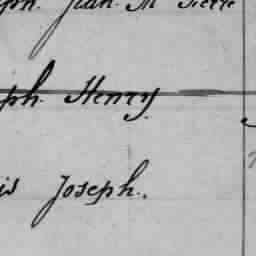 ph. Jean. M Pierre
ph. Henry.
is Joseph.